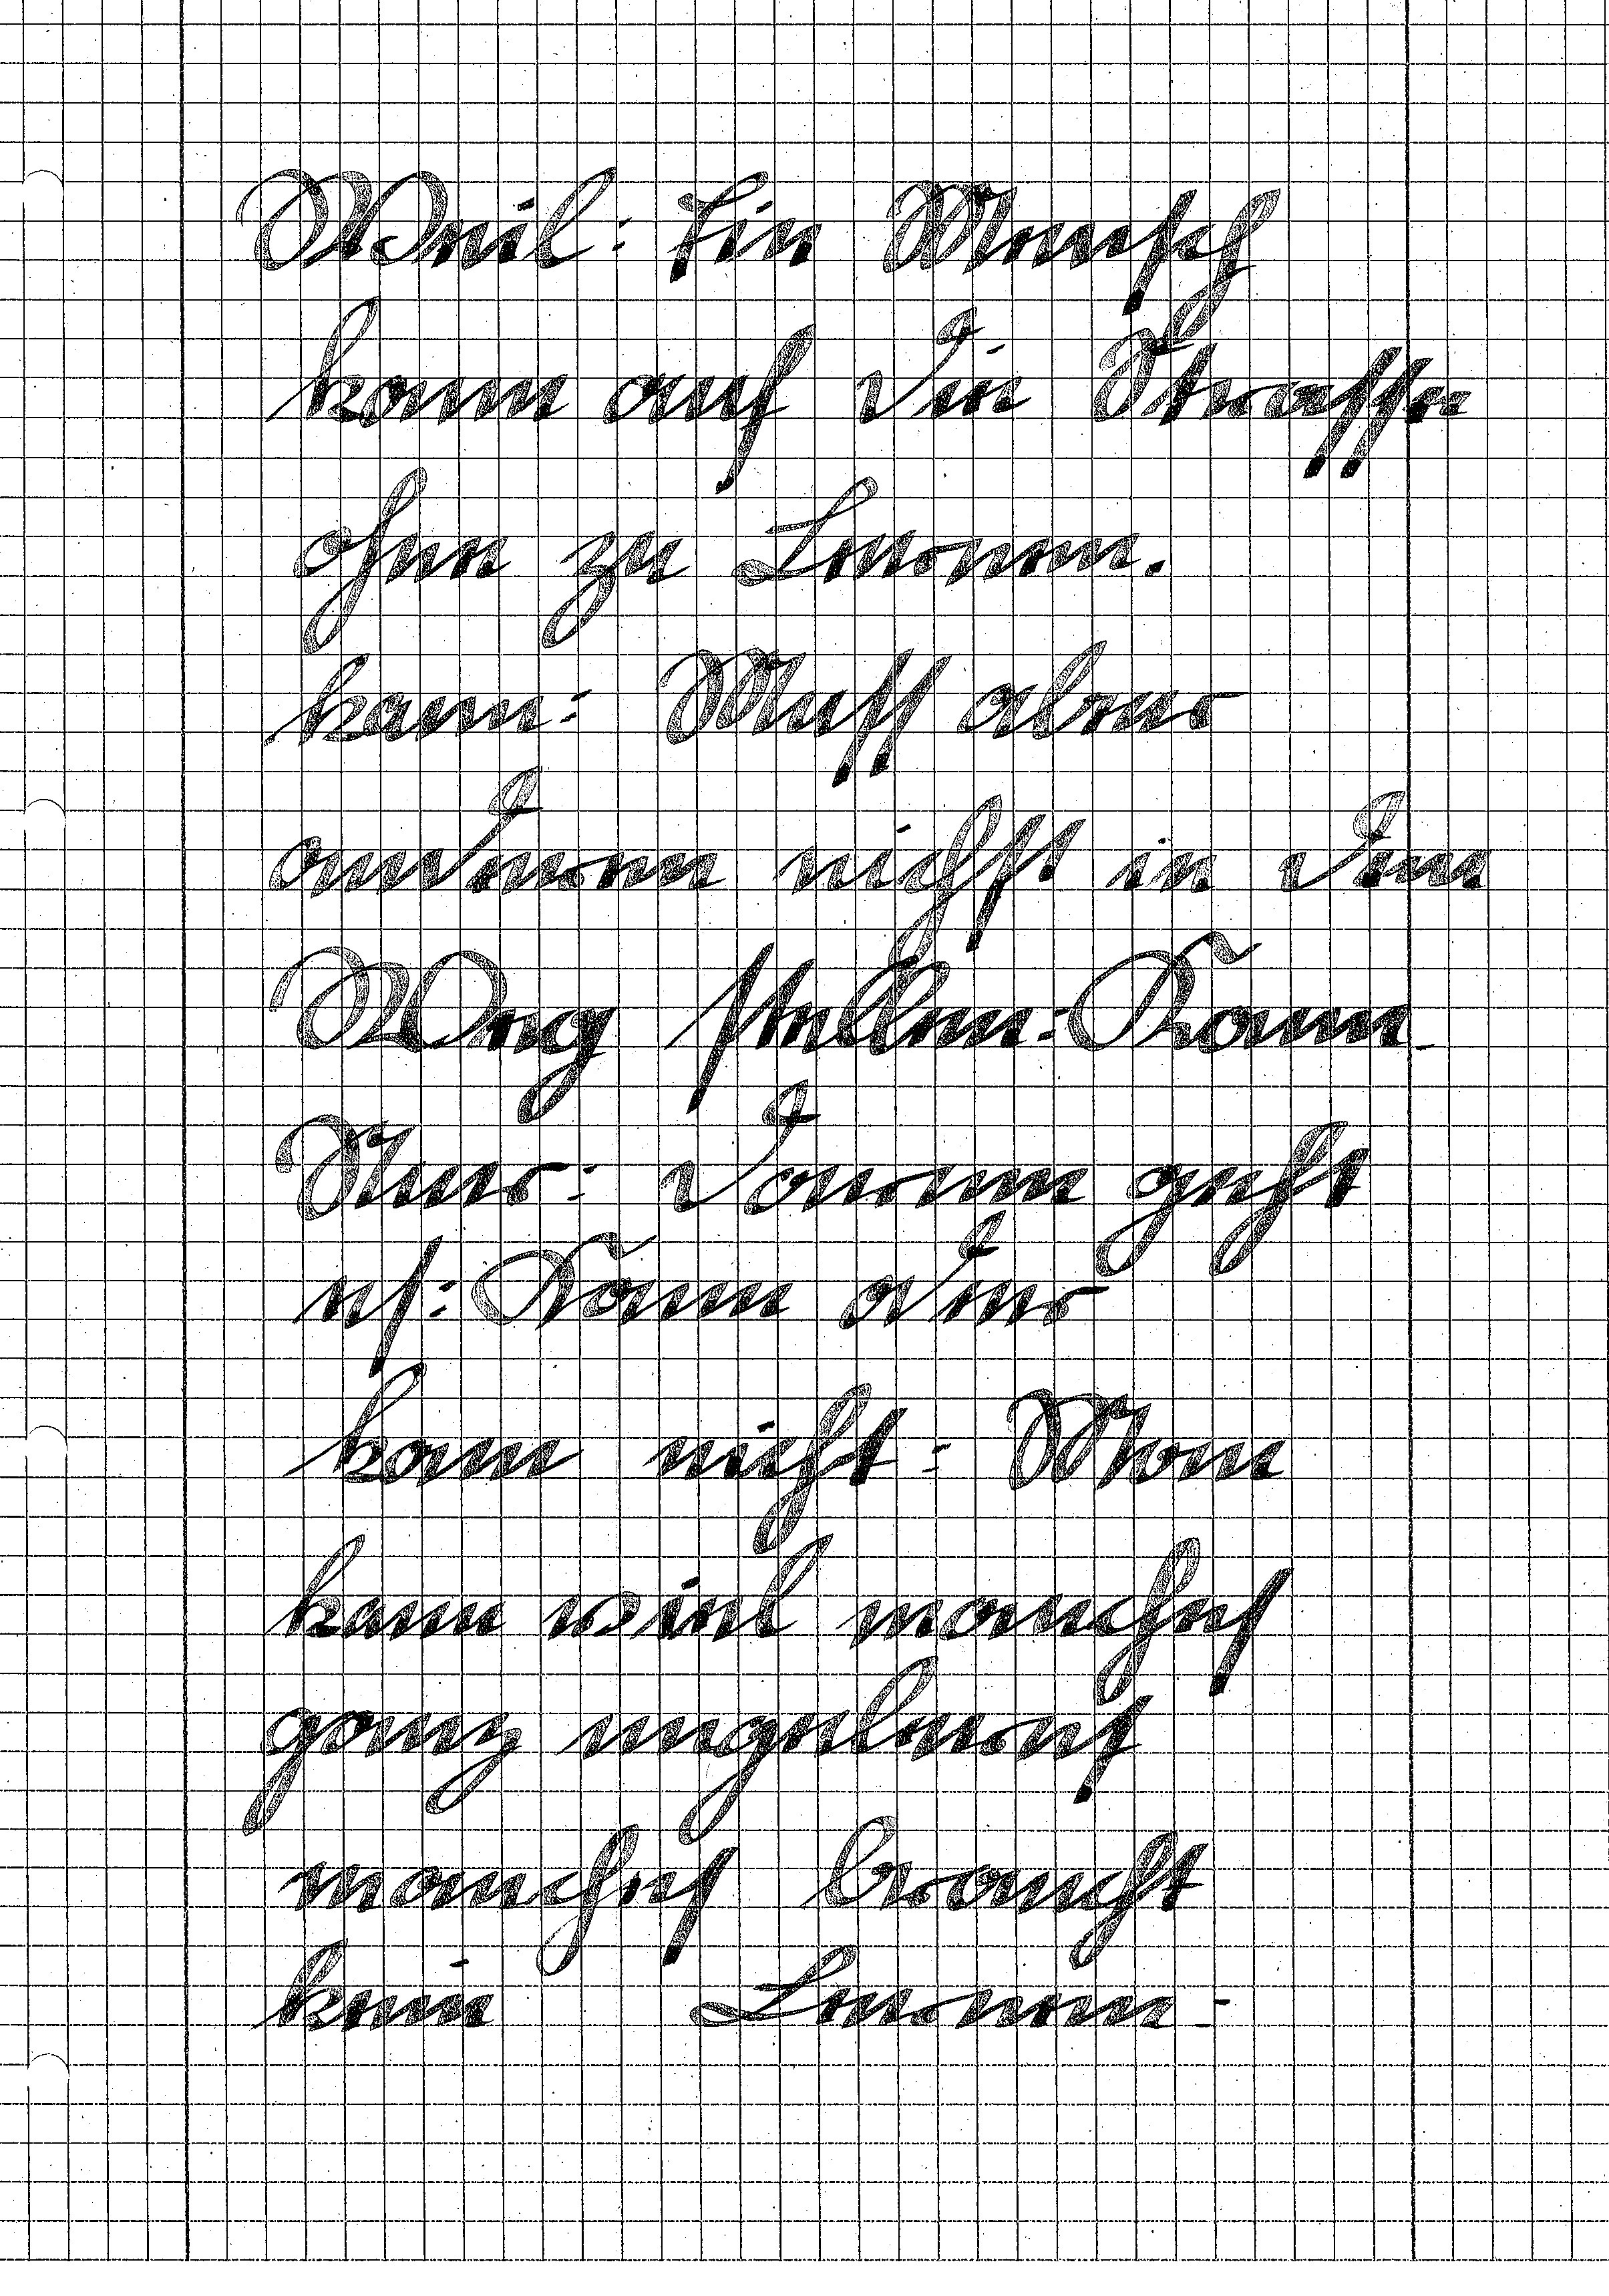 Weil: Ein Mensch
kann auf die Strasse
ohne zu Lernen.
kann: Muss aber
anderen nicht in den
Weg stellen: Kann.
Nur: darum geht
es: Kann oder
kann nicht: Man
kann viel manches
ganz ungelernt
manches braucht
kein Lernen: